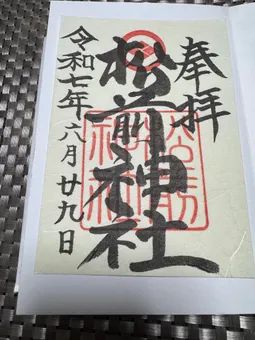 奉拝
松前神社
令和七年六月廿九日